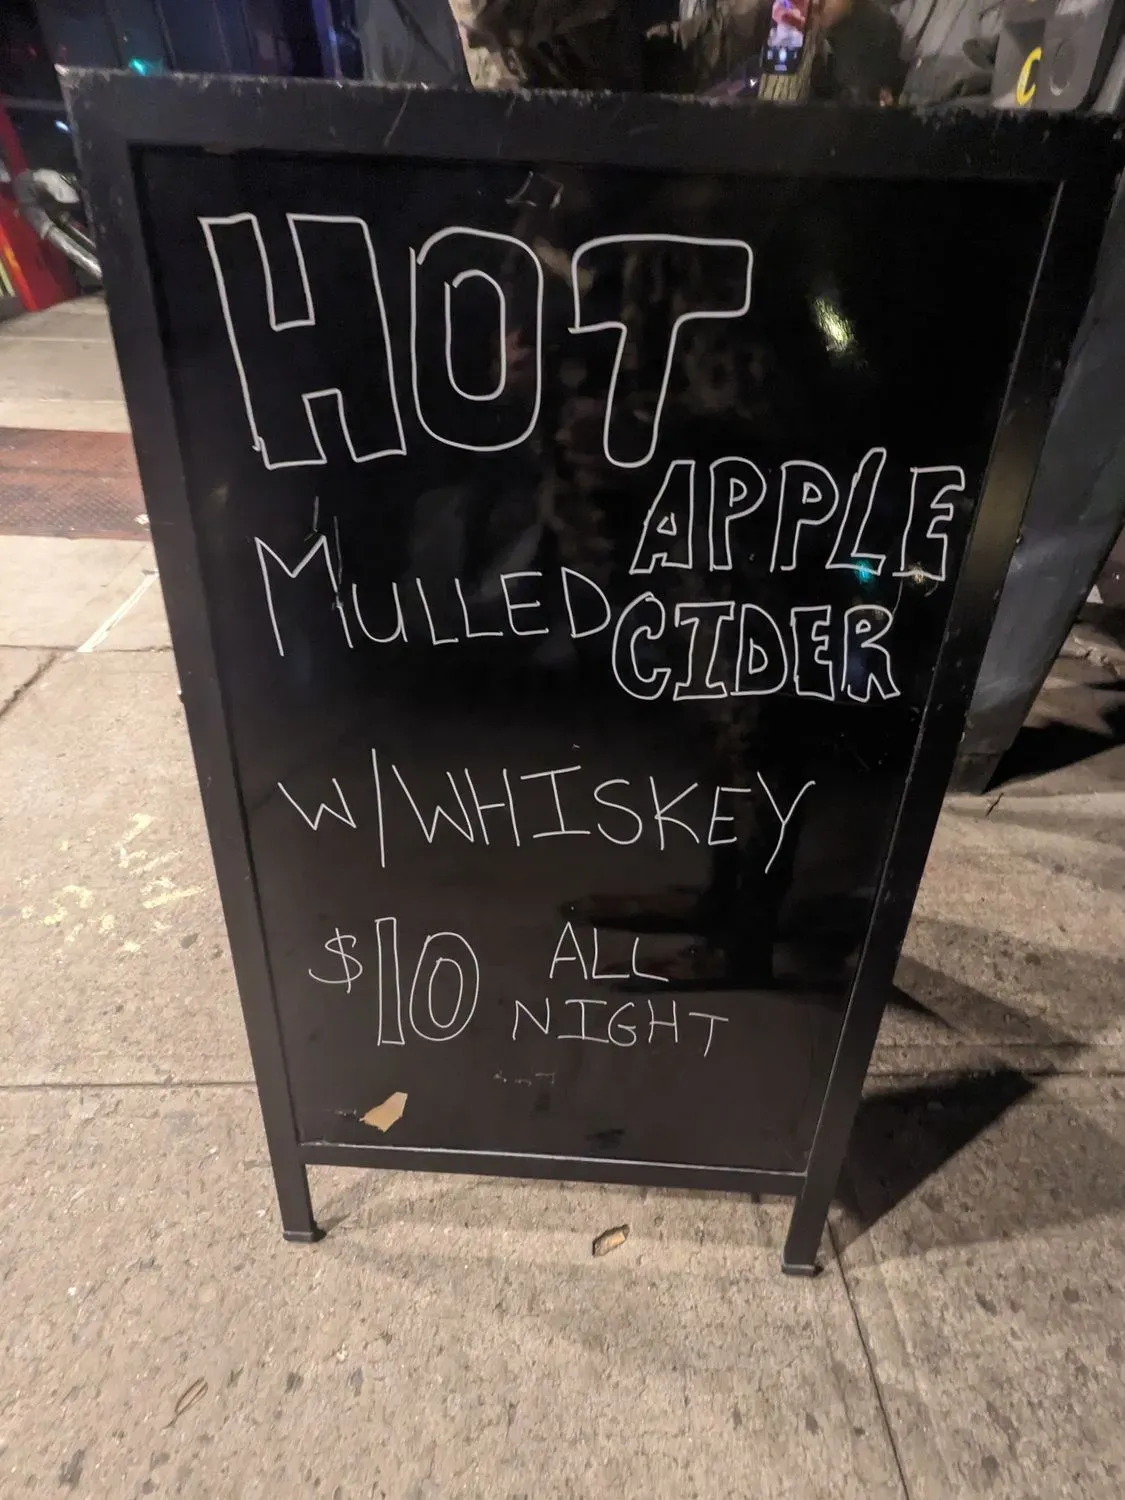 HOT
MULLED APPLE CIDER
W/WHISKEY
$10 ALL NIGHT